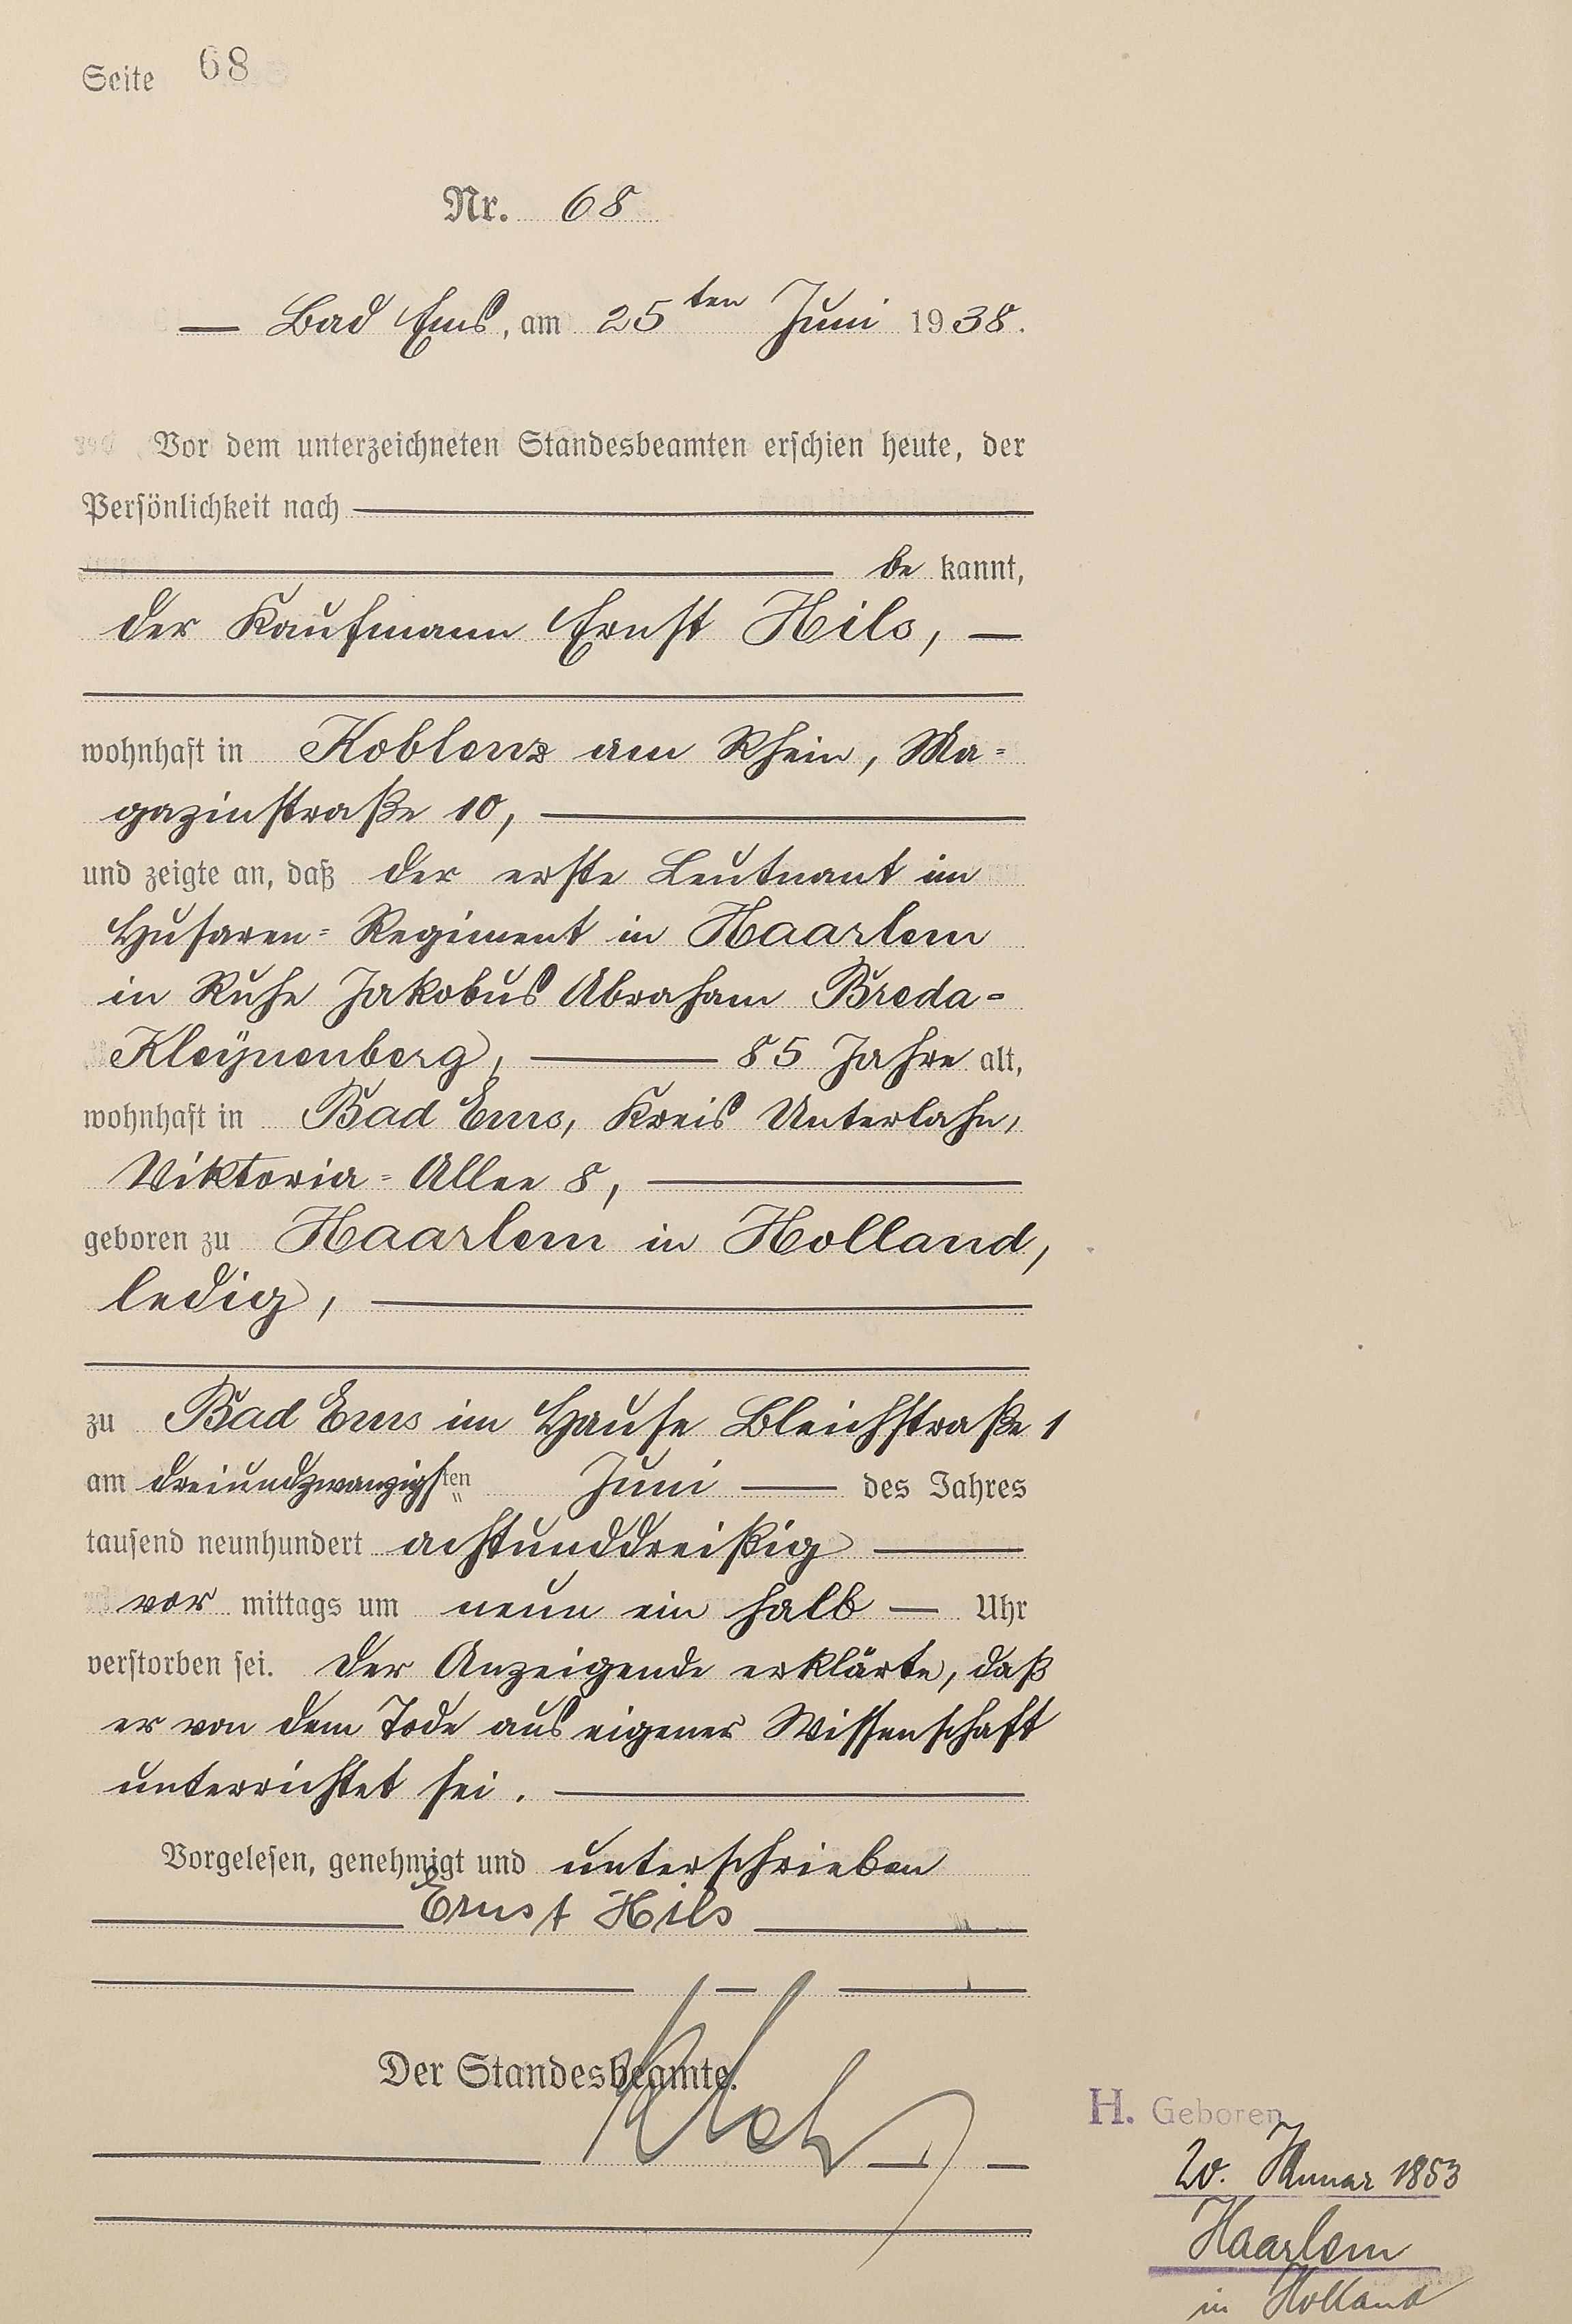 Seite 68
Nr. 68
Bad Ems, am 25ten Juni 1938.
Vor dem unterzeichneten Standesbeamten erschien heute, der
Persönlichkeit nach
be kannt,
der Kaufmann Ernst Hils,
wohnhaft in Koblenz am Rhein, Ma=
gazinstraße 10,
und zeigte an, daß der erste Leutnant im
Husaren=Regiment in Haarlem
in Ruhe Jakobus Abraham Breda-
Kleÿnenberg, 85 Jahre alt,
wohnhaft in Bad Ems, Kreis Unterlahn,
Viktoria=Allee 8,
geboren zu Haarlem in Holland,
ledig,
zu Bad Ems im Hause Bleichstraße 1
am dreiundzwanzigsten Juni des Jahres
tausend neunhundert achtunddreißig
vor mittags um neun ein halb Uhr
verstorben sei. Der Anzeigende erklärte, daß
er von dem Tode aus eigener Wissenschaft
unterrichtet sei.
Vorgelesen, genehmigt und unterschrieben
Ernst Hils
Der Standesbeamte.
H. Geboren
20. Januar 1853
Haarlem
in Holland